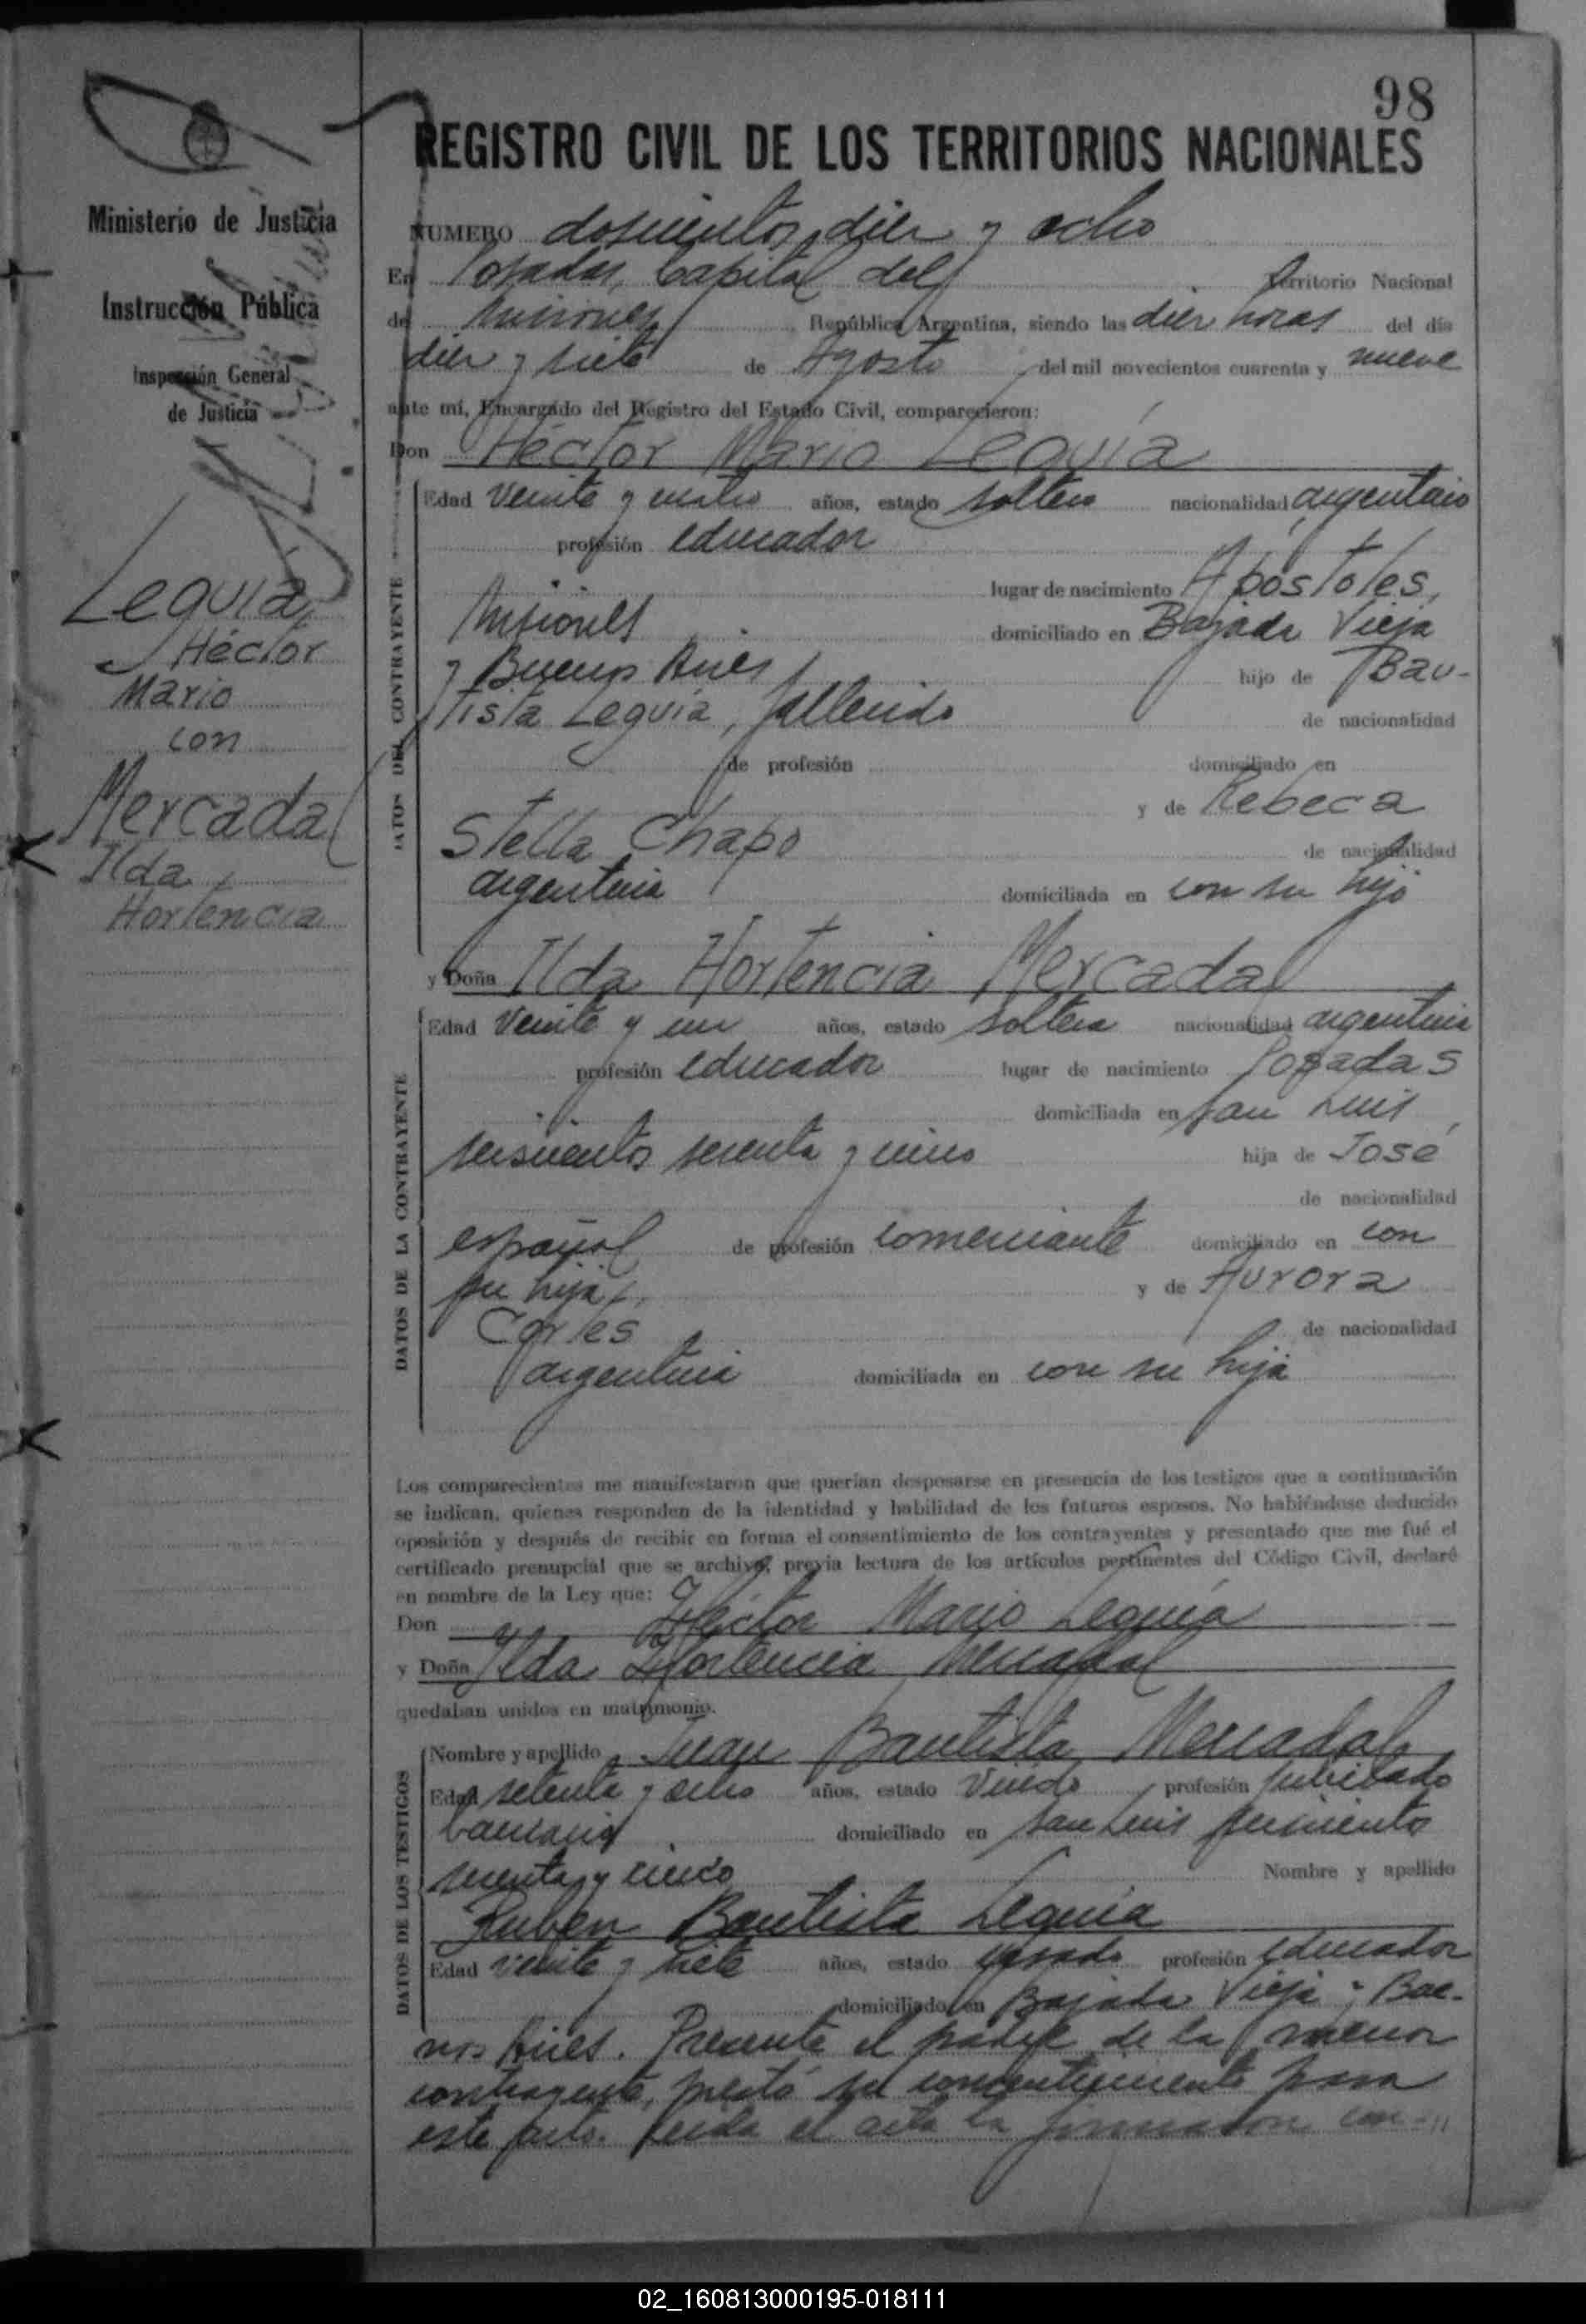 98
REGISTRO CIVIL DE LOS TERRITORIOS NACIONALES
Ministerio de Justicia
Instrucción Pública
Inspección General
de Justicia
Leguía,
Héctor
Mario
con
Mercadal
Ilda
Hortencia
NUMERO doscientos diez y ocho
En Posadas, Capital del Territorio Nacional
de Misiones República Argentina, siendo las diez horas del día
diez y siete de Agosto del mil novecientos cuarenta y nueve
ante mí, Encargado del Registro del Estado Civil, comparecieron:
Don Héctor Mario Leguía
DATOS DEL CONTRAYENTE
Edad veinte y cuatro años, estado soltero nacionalidad argentino
profesión educador
lugar de nacimiento Apóstoles,
Misiones domiciliado en Bajada Vieja
y Buenos Aires hijo de Bau-
tista Leguía, fallecido de nacionalidad
de profesión domiciliado en
y de Rebeca
Stella Chapo de nacionalidad
argentina domiciliada en con su hijo
y Doña Ilda Hortencia Mercadal
DATOS DE LA CONTRAYENTE
Edad veinte y un años, estado soltera nacionalidad argentina
profesión educador lugar de nacimiento Posadas
domiciliada en San Luis,
seiscientos sesenta y cinco hija de José
de nacionalidad
español de profesión comerciante domiciliado en con
su hija y de Aurora
Cortés de nacionalidad
argentina domiciliada en con su hija
Los comparecientes me manifestaron que querían desposarse en presencia de los testigos que a continuación
se indican, quienes responden de la identidad y habilidad de los futuros esposos. No habiéndose deducido
oposición y después de recibir en forma el consentimiento de los contrayentes y presentado que me fué el
certificado prenupcial que se archiva, previa lectura de los artículos pertinentes del Código Civil, declaré
en nombre de la Ley que:
Don Héctor Mario Leguía
y Doña Ilda Hortencia Mercadal
quedaban unidos en matrimonio.
DATOS DE LOS TESTIGOS
Nombre y apellido Juan Bautista Mercadal
Edad setenta y ocho años, estado viudo profesión jubilado
bancario domiciliado en San Luis seiscientos
sesenta y cinco Nombre y apellido
Ruben Bautista Leguía
Edad veinte y siete años, estado casado profesión educador
domiciliado en Bajada Vieja y Bue-
nos Aires. Presente el padre de la menor
contrayente, prestó su consentimiento para
este acto. Leída el acta la firmaron con-"
02_160813000195-018111